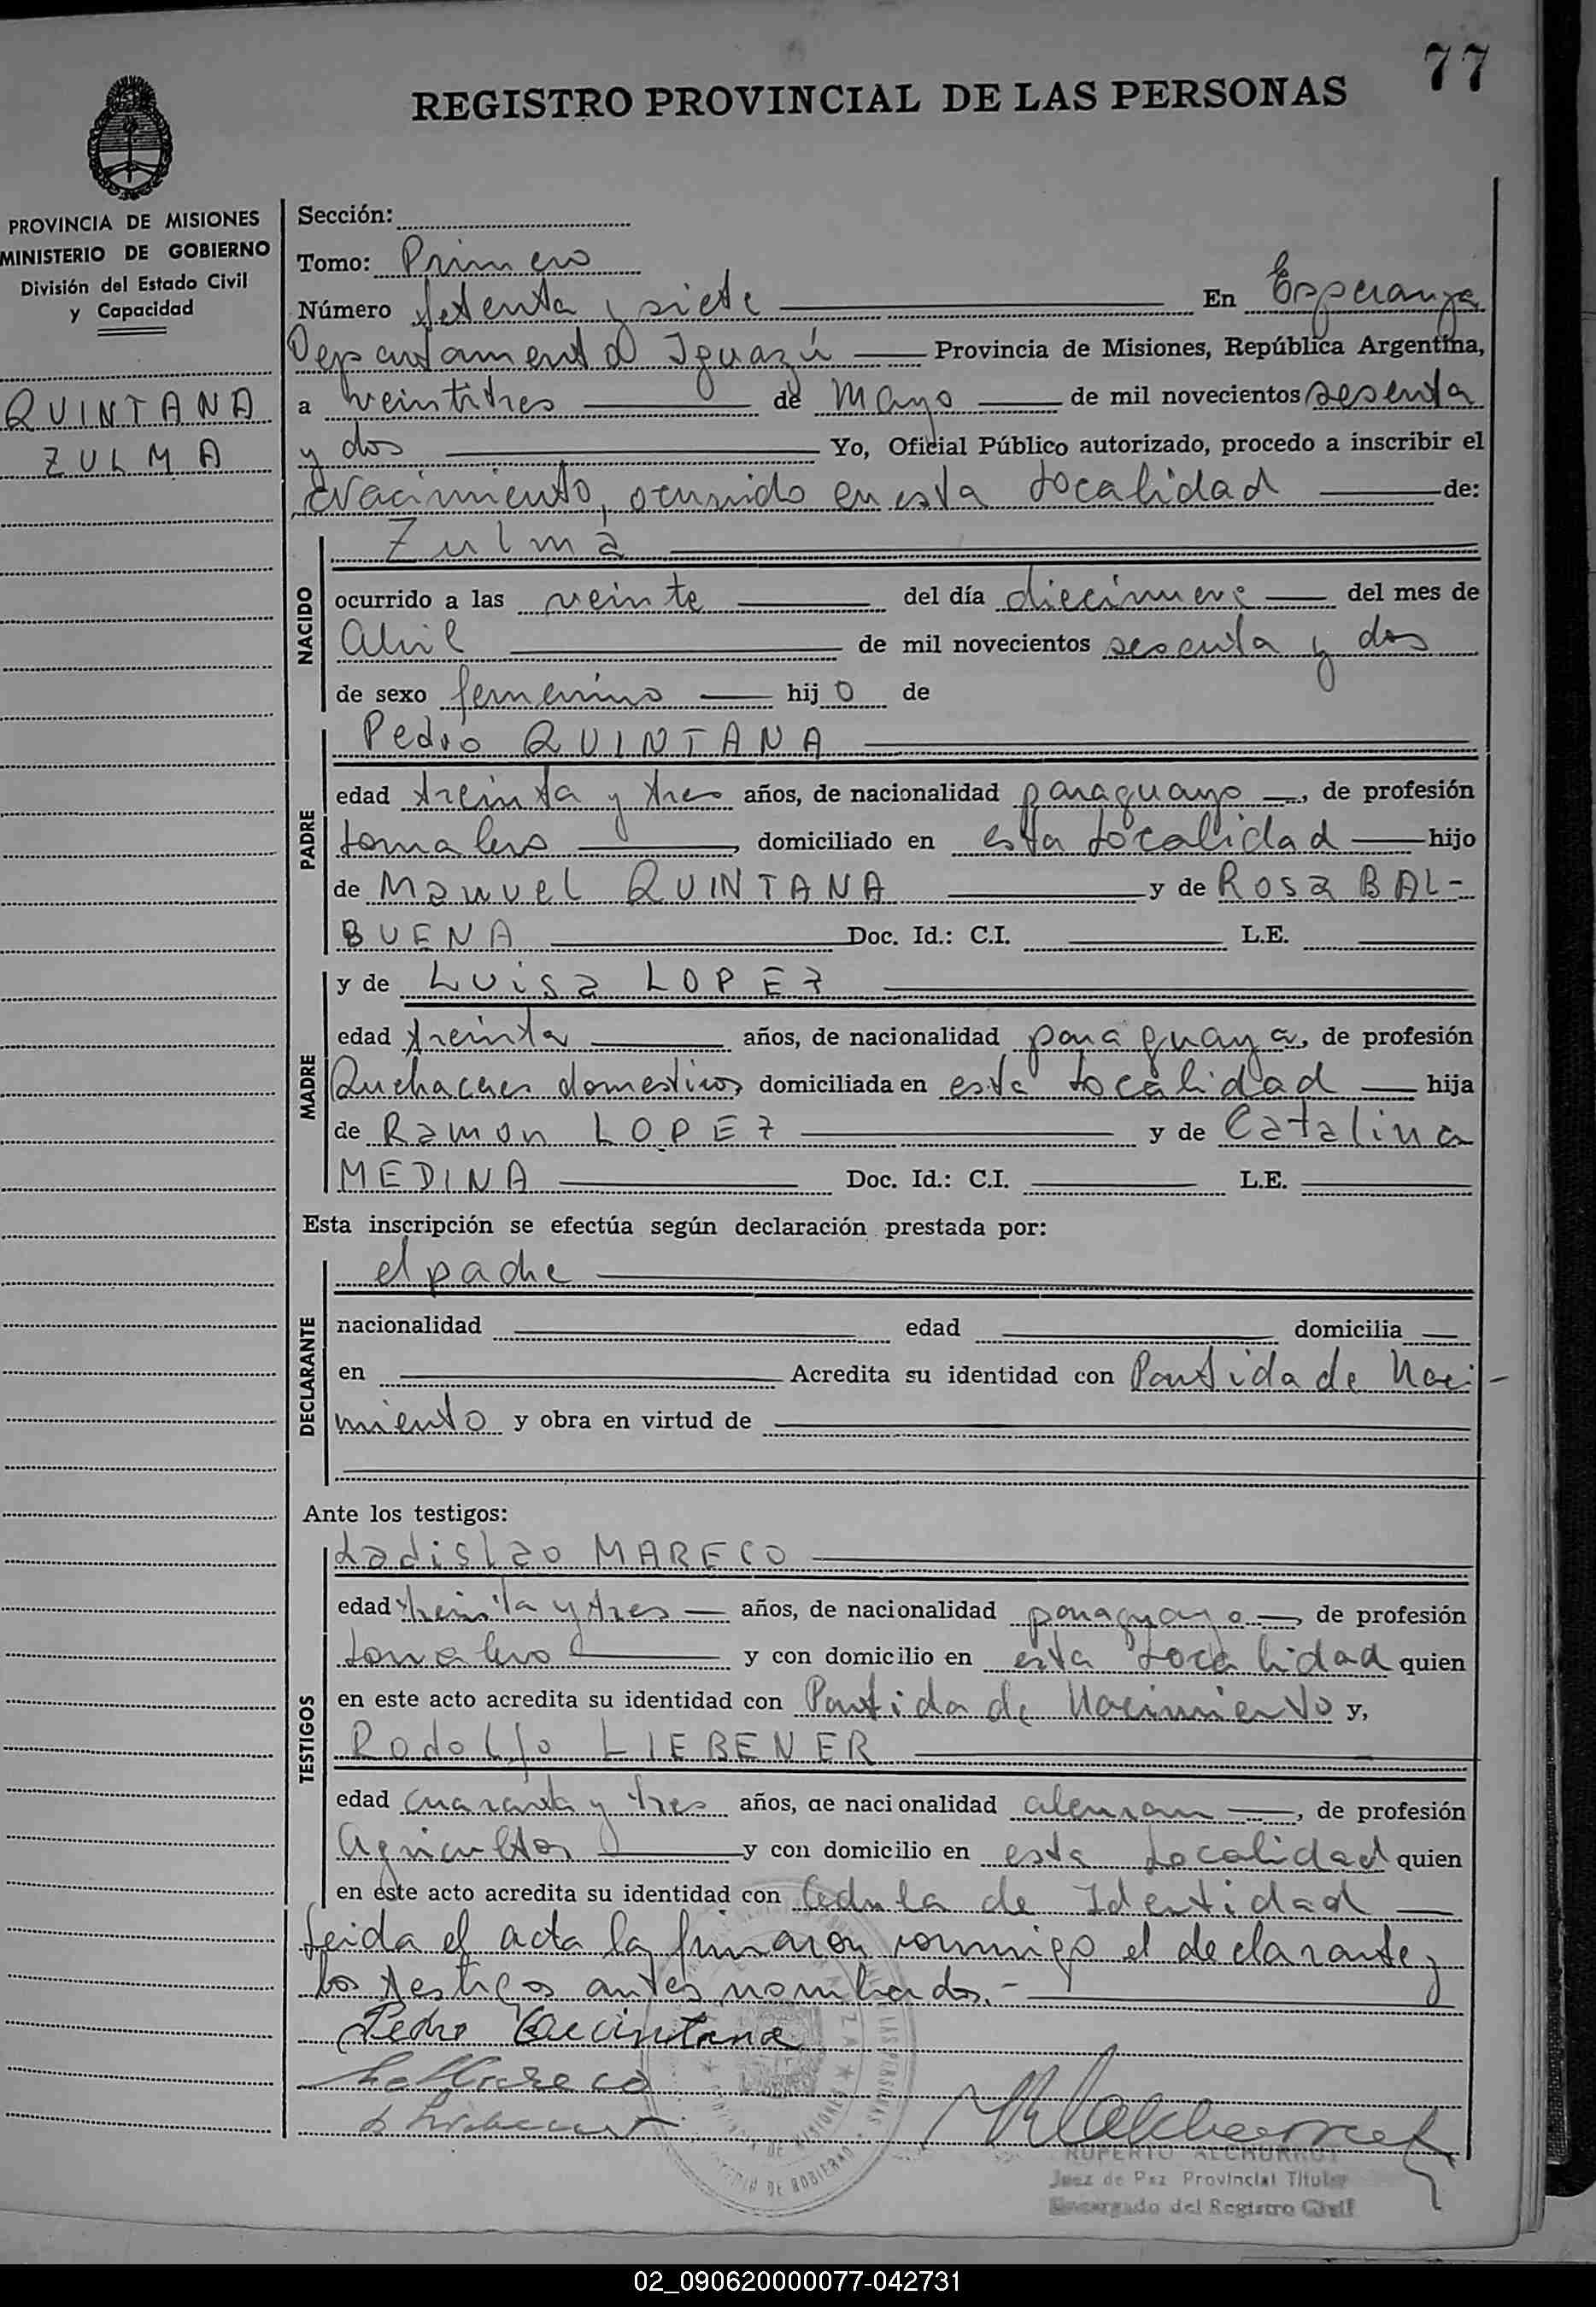 77
REGISTRO PROVINCIAL DE LAS PERSONAS
PROVINCIA DE MISIONES
MINISTERIO DE GOBIERNO
División del Estado Civil
y Capacidad
QUINTANA
ZULMA
Sección:
Tomo: Primero
Número setenta y siete En Esperanza
Departamento Iguazú Provincia de Misiones, República Argentina,
a veintitres de Mayo de mil novecientos sesenta
y dos Yo, Oficial Público autorizado, procedo a inscribir el
Nacimiento, ocurrido en esta Localidad de:
NACIDO
Zulma
ocurrido a las veinte del día diecinueve del mes de
Abril de mil novecientos sesenta y dos
de sexo femenino hijo de
PADRE
Pedro QUINTANA
edad treinta y tres años, de nacionalidad paraguayo, de profesión
Jornalero, domiciliado en esta Localidad hijo
de Manuel QUINTANA y de Rosa BAL-
BUENA Doc. Id.: C.I. L.E.
MADRE
y de Luisa LOPEZ
edad treinta años, de nacionalidad paraguaya, de profesión
Quehaceres domesticos domiciliada en esta Localidad hija
de Ramon LOPEZ y de Catalina
MEDINA Doc. Id.: C.I. L.E.
Esta inscripción se efectúa según declaración prestada por:
DECLARANTE
el padre
nacionalidad edad domicilia
en Acredita su identidad con Partida de Naci-
miento y obra en virtud de
Ante los testigos:
TESTIGOS
Ladislao MARECO
edad treinta y tres años, de nacionalidad paraguayo, de profesión
Jornalero y con domicilio en esta Localidad quien
en este acto acredita su identidad con Partida de Nacimiento y,
Rodolfo LIEBENER
edad cuarenta y tres años, de nacionalidad aleman, de profesión
Agricultor y con domicilio en esta Localidad quien
en este acto acredita su identidad con Cedula de Identidad
Leida el acta la firmaron conmigo el declarante y
los testigos antes nombrados.-
Pedro Quintana
Mareco
RUPERTO
Juez de Paz Provincial Titular
Encargado del Registro Civil
02_090620000077-042731